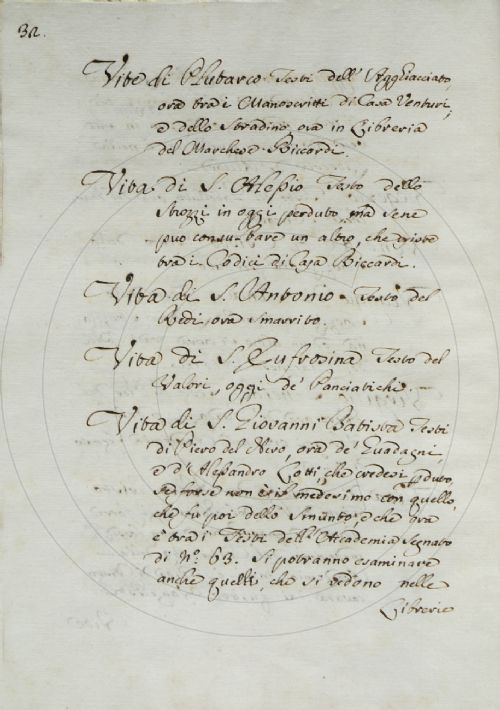 32.
Vite di Plutarco Testi dell' Agghiacciato,
ora tra i Manoscritti di Casa Venturi,
e dello Stradino, ora in Libreria
del Marchese Riccardi.
Vita di S. Alessio Testo dello
Strozzi in oggi perduto, ma sene
può consultare un altro, che esiste
tra i Codici di Casa Riccardi.
Vita di S. Antonio Testo del
Redi, ora smarrito.
Vita di S. Eufrosina Testo del
Valori, oggi de' Panciatichi.
Vita di S. Giovanni Batista Testi
di Piero del Nero, ora de' Guadagni,
e d'Alessandro che credesi pduto,
se forse non è il medesimo con quello,
che fu poi dello Smunto, e che ora
è tra i Testi dell' Accademia segnato
di N.º 63. Si potranno esaminare
anche quelli, che si vedono nelle
Librerie